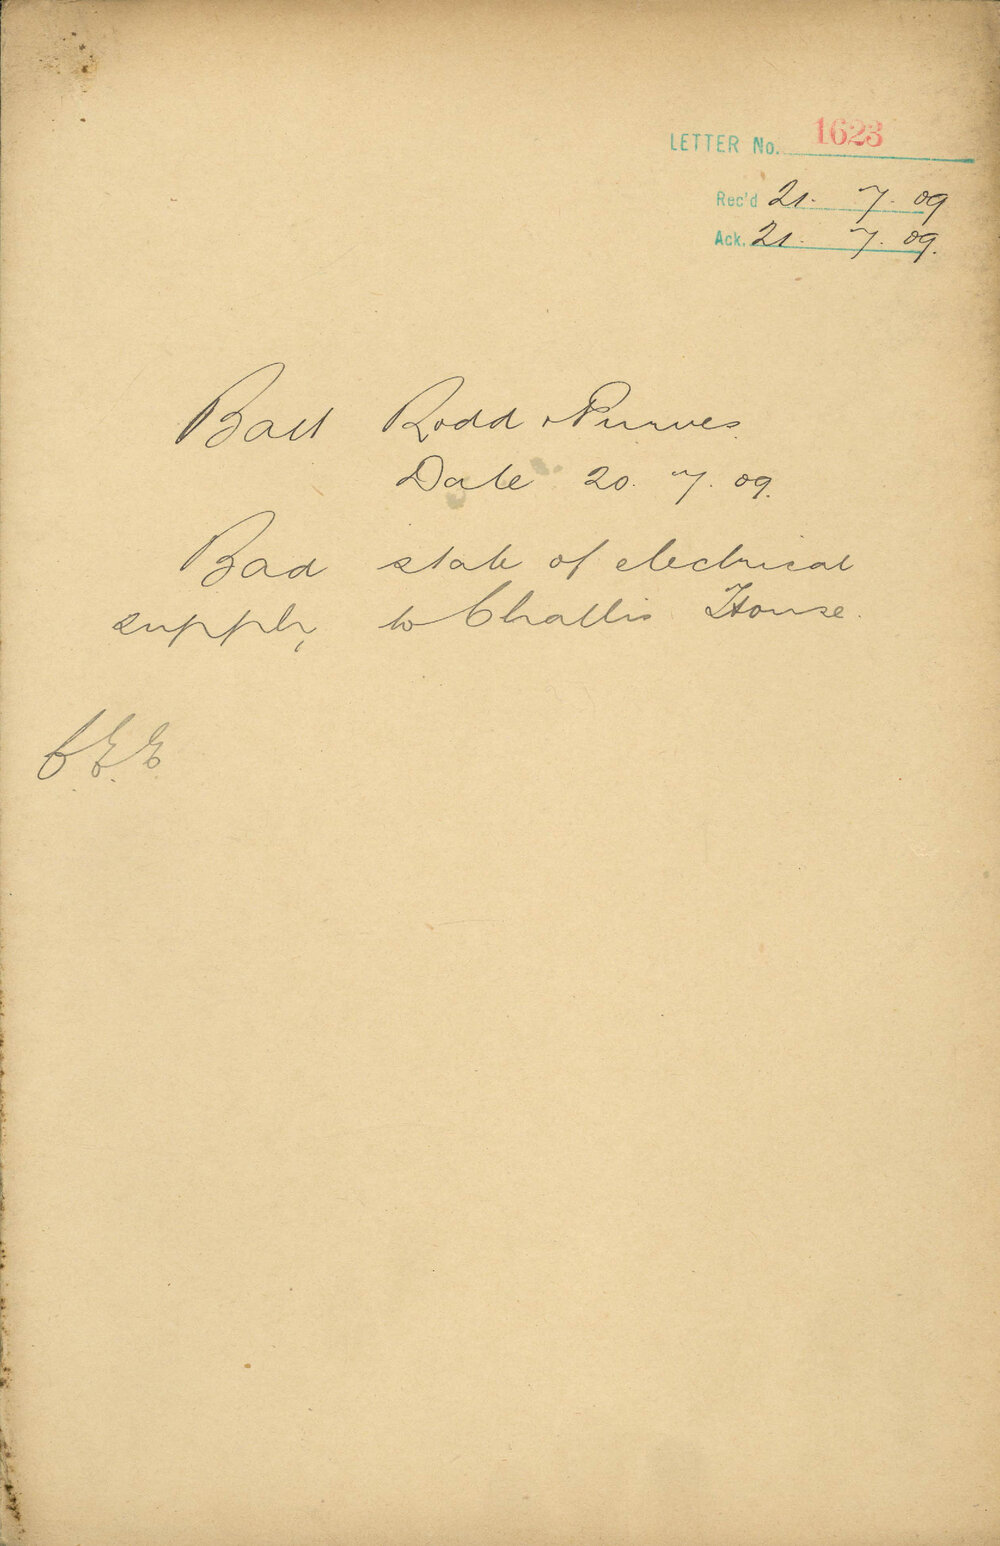 LETTER No. 1623
Rec'd 21. 7. 09
Ack. 21. 7. 09.
Ball Rodd & Purves.
Date 20. 7. 09.
Bad state of electrical
supply, to Challis House.
C.E.E.